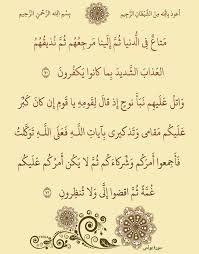 أعوذ بالله من الشيطان الرجيم
بسم الله الرحمن الرحيم
مَتَاعٌ فِي الدُّنْيَا ثُمَّ إِلَيْنَا مَرْجِعُهُمْ ثُمَّ نُذِيقُهُمُ
الْعَذَابَ الشَّدِيدَ بِمَا كَانُوا يَكْفُرُونَ
وَاتْلُ عَلَيْهِمْ نَبَأَ نُوحٍ إِذْ قَالَ لِقَوْمِهِ يَا قَوْمِ إِنْ كَانَ كَبُرَ
عَلَيْكُمْ مَقَامِي وَتَذْكِيرِي بِآيَاتِ اللَّهِ فَعَلَى اللَّهِ تَوَكَّلْتُ
فَأَجْمِعُوا أَمْرَكُمْ وَشُرَكَاءَكُمْ ثُمَّ لَا يَكُنْ أَمْرُكُمْ عَلَيْكُمْ
غُمَّةً ثُمَّ اقْضُوا إِلَيَّ وَلَا تُنْظِرُونِ
سورة يونس